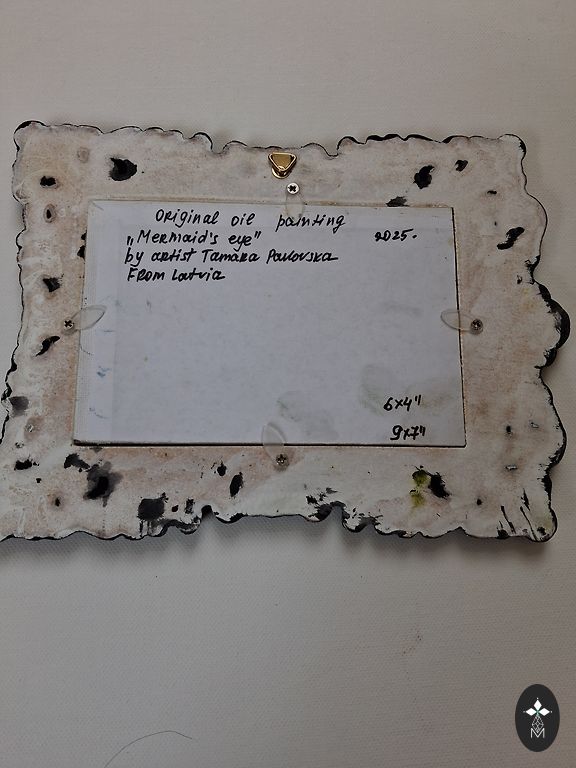 Original oil painting
„Mermaid's eye" 2025.
by artist Tamāra Pavlovska
From Latvia
6x4"
9x7"
M